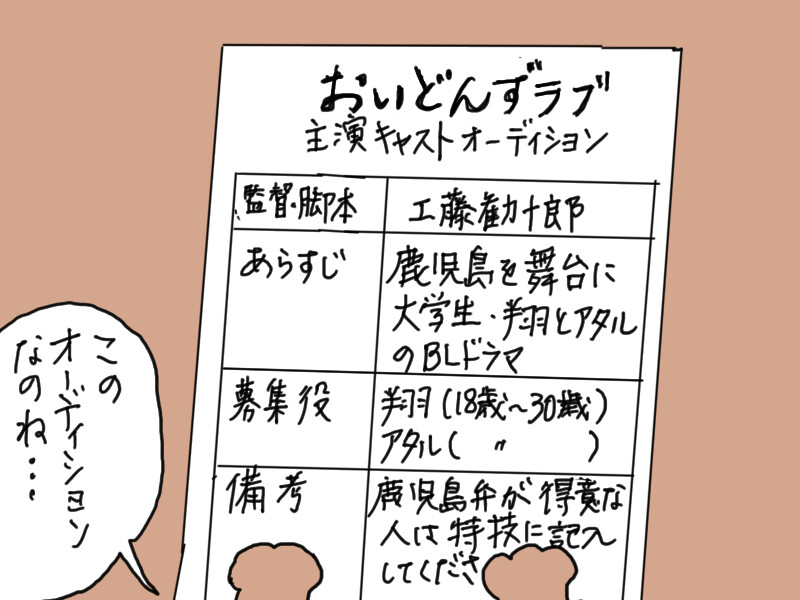 おいどんずラブ
主演キャストオーディション
監督・脚本
工藤勧十郎
あらすじ
鹿児島を舞台に
大学生・翔とアタル
のBLドラマ
募集役
翔(18歳〜30歳)
アタル(〃)
備考
鹿児島弁が得意な
人は特技に記入
してくださ
この
オーディション
なのね…